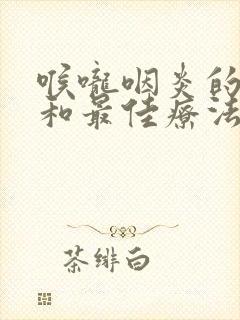 喉嚨咽炎的
和最佳療法
茶緋白